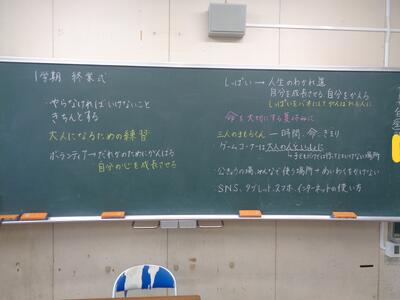 1学期 終業式
・やらなければいけないこと
きちんとする
大人になるための練習
ボランティア→だれかのためにがんばる
自分の心を成長させる
しっぱい → 人生のわかれ道
自分を成長させる 自分をかえる
しっぱいをバネにしてがんばれる人に
命を大切にする夏休みに
三人のまもらくん 一時間、命、きまり
ゲームコーナーは大人の人といっしょに
→子どもだけでは行ってはいけない場所
・公きょうの場、みんなで使う場所→めいわくをかけない
・SNS、タブレット、スマホ、インターネットの使い方